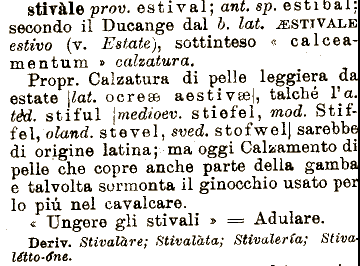 stivàle prov. estival; ant. sp. estibal;
secondo il Ducange dal b. lat. ÆSTIVALE
estivo (v. Estate), sottinteso « calcea-
mentum » calzatura.
Propr. Calzatura di pelle leggiera da
estate [lat. ocreæ aestivæ], talché l'a.
tèd. stiful [medioev. stiefel, mod. Stif-
fel, oland. stevel, sved. stofwel] sarebbe
di origine latina; ma oggi Calzamento di
pelle che copre anche parte della gamba
e talvolta sormonta il ginocchio usato per
lo più nel cavalcare.
« Ungere gli stivali » = Adulare.
Deriv. Stivalàre; Stivalàta; Stivalería; Stiva-
létto-óne.